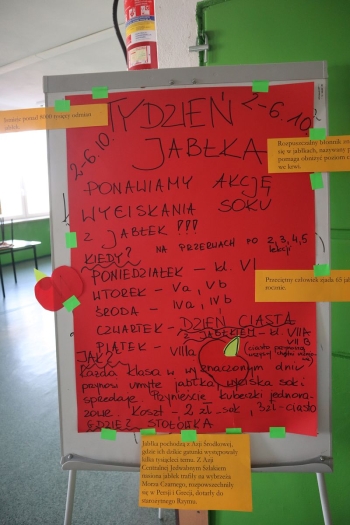 Istnieje ponad 8000 tysięcy odmian
jabłek.
TYDZIEŃ
2-6.10.
2-6.10.
JABŁKA
Rozpuszczalny błonnik
się w jabłkach, nazywany
pomaga obniżyć poziom
we krwi.
PONAWIAMY AKCJĘ
WYCISKANIA SOKU
Z JABŁEK !!!
KIEDY?
NA PRZERWACH PO 2,3,4,5
lekcji
PONIEDZIAŁEK - kl. VI
WTOREK - Va, Vb
ŚRODA - IVa, IVb
Przeciętny człowiek zjada 65
rocznie.
CZWARTEK -
DZIEŃ CIASTA
Z JABŁKIEM - kl. VIIA
VII B
PIĄTEK - VIIIa
(ciasto
wszyscy
JAK?
Każda klasa w wyznaczonym dniu
myte jabłka, wyciska sok i
sprzedaje. Przynieście kubeczki jednora-
zowe. Koszt - 2 zł - sok, 3 zł - ciasto
GDZIE? STOŁÓWKA
Jabłka pochodzą z Azji Środkowej,
gdzie ich dzikie gatunki występowały
kilka tysięcy temu. Z Azji
Centralnej Jedwabnym Szlakiem
nasiona jabłek trafiły na wybrzeża
Morza Czarnego, rozpowszechniły
się w Persji i Grecji, dotarły do
starożytnego Rzymu.